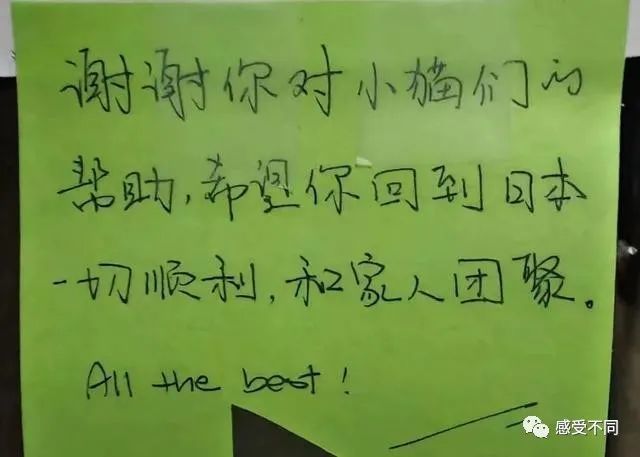 谢谢你对小猫们的
帮助,希望你回到日本
一切顺利,和家人团聚。
All the best!
感受不同